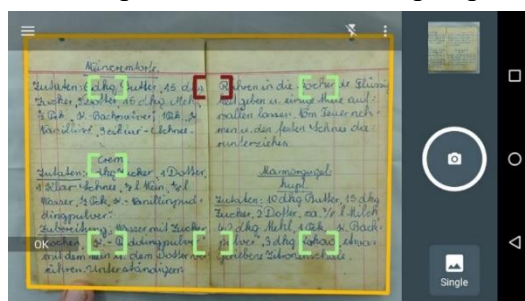 Münzentorte.
Zutaten: 6 dkg Butter, 15 dkg
Zucker, 2 Dotter, 15 dkg Mehl,
1/2 Pck. Backpulver, 1 Pck. V.
Vanillinz. Schnee.
Creme
Zutaten: dkg Zucker, 1 Dotter,
1 Klar-Schnee, 1/8 l Wein, 1/8 l
Wasser, 1/2 Pck. Vanillinpud-
dingpulver.
Zubereitung: Wasser mit Zucker
kochen, Puddingpulver
mit dem Wein u. dem Dotter
rühren. Unter ständigem
OK
Rühren in die kochende Flüssig
keit geben u. einige Male auf-
wallen lassen. Vom Feuer neh-
men u. den festen Schnee da-
runterziehen.
Marmorgugel-
hupf.
Zutaten: 10 dkg Butter, 15 dkg
Zucker, 2 Dotter, ca. 1/8 l Milch
dkg Mehl, 1 Pck. Back-
pulver, 3 dkg Kakao, etwas
geriebene Zitronenschale.
Single